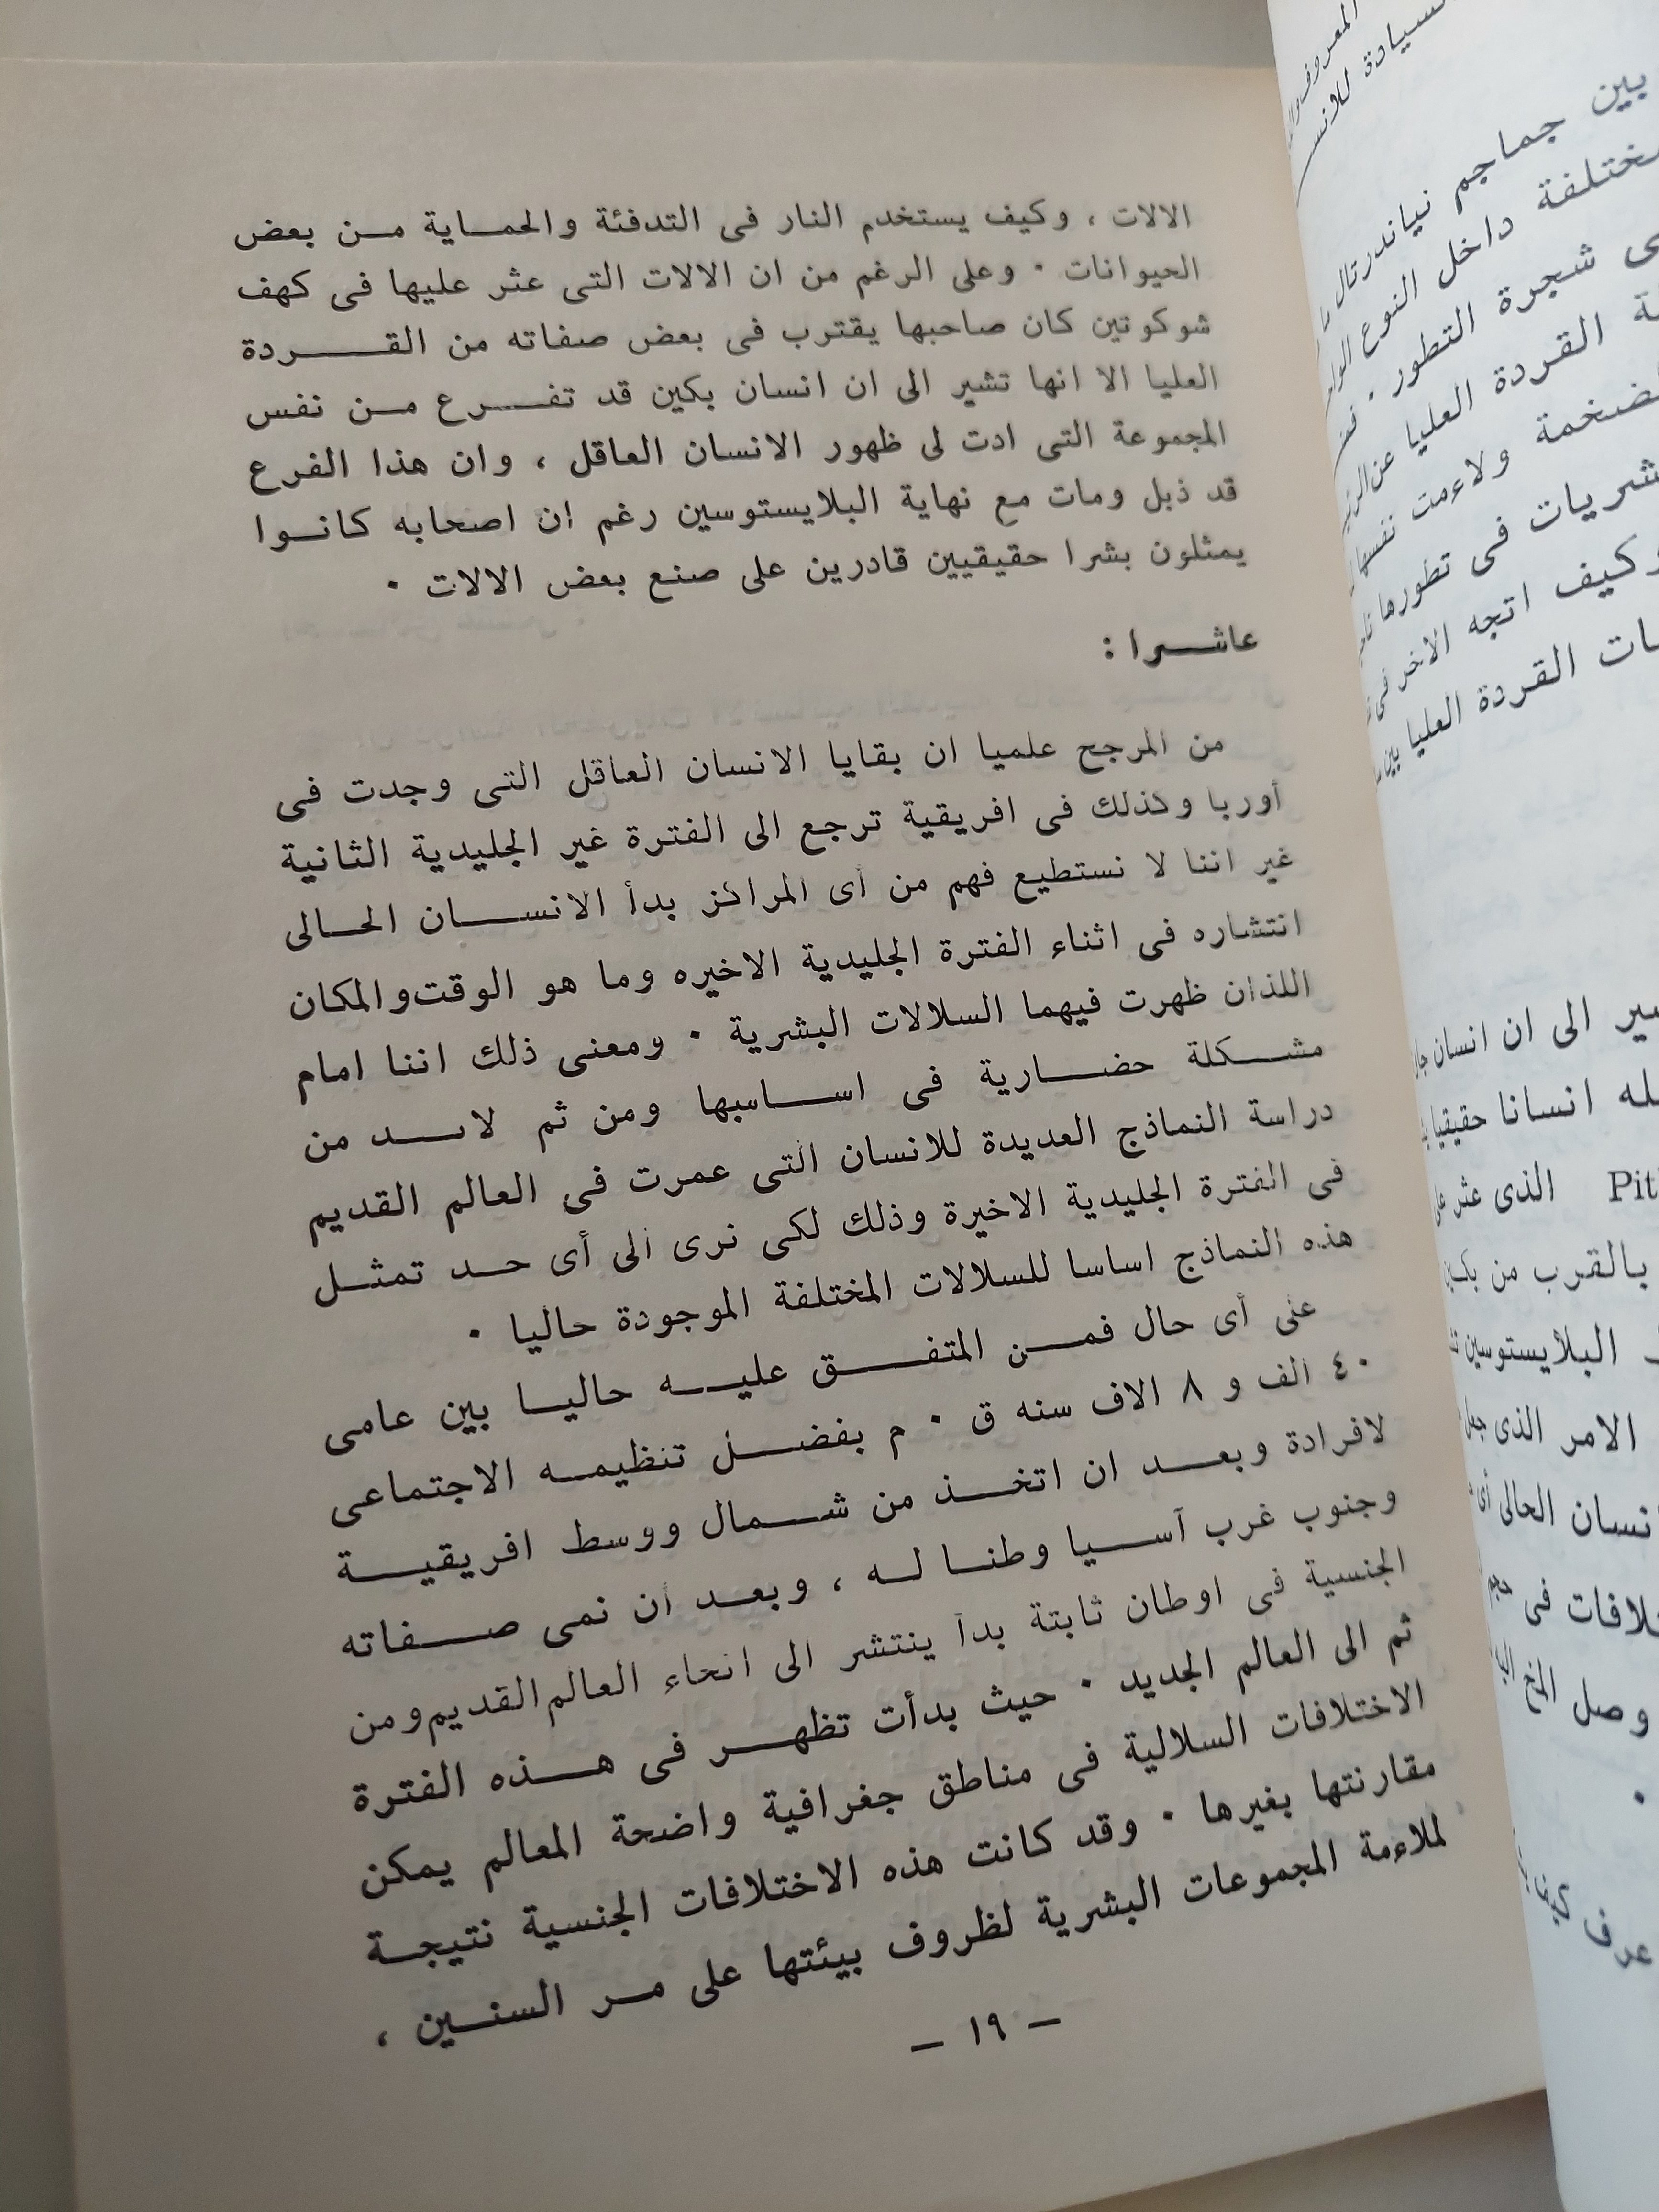 الالات ، وكيف يستخدم النار فى التدفئة والحماية من بعض
الحيوانات ٠ وعلى الرغم من ان الالات التى عثر عليها فى كهف
شوكوتين كان صاحبها يقترب فى بعض صفاته من القردة
العليا الا انها تشير الى ان انسان بكين قد تفرع من نفس
المجموعة التى ادت لى ظهور الانسان العاقل ، وان هذا الفرع
قد ذبل ومات مع نهاية البلايستوسين رغم ان اصحابه كانوا
يمثلون بشرا حقيقيين قادرين على صنع بعض الالات ٠
عاشرا :
من المرجح علميا ان بقايا الانسان العاقل التى وجدت فى
أوربا وكذلك فى افريقية ترجع الى الفترة غير الجليدية الثانية
غير اننا لا نستطيع فهم من أى المراكز بدأ الانسان الحالى
انتشاره فى اثناء الفترة الجليدية الاخيره وما هو الوقت والمكان
اللذان ظهرت فيهما السلالات البشرية ٠ ومعنى ذلك اننا امام
مشكلة حضارية فى اساسها ومن ثم لابد من
دراسة النماذج العديدة للانسان التى عمرت فى العالم القديم
فى الفترة الجليدية الاخيرة وذلك لكى نرى الى أى حد تمثل
هذه النماذج اساسا للسلالات المختلفة الموجودة حاليا ٠
على أى حال فمن المتفق عليه حاليا بين عامى
٤٠ الف و ٨ الاف سنه ق ٠ م بفضل تنظيمه الاجتماعى
لافرادة وبعد ان اتخذ من شمال ووسط افريقية
وجنوب غرب آسيا وطنا له ، وبعد أن نمى صفاته
الجنسية فى اوطان ثابتة بدأ ينتشر الى انحاء العالم القديم ومن
ثم الى العالم الجديد ٠ حيث بدأت تظهر فى هذه الفترة
الاختلافات السلالية فى مناطق جغرافية واضحة المعالم يمكن
مقارنتها بغيرها ٠ وقد كانت هذه الاختلافات الجنسية نتيجة
لملاءمة المجموعات البشرية لظروف بيئتها على مر السنين ،
— ١٩ —
بين جماجم نياندرتال
داخل النوع
شجرة التطور ٠
القردة العليا
ولاءمت
فى تطورها
وكيف اتجه الاخر
القردة العليا
الى ان انسان
انسانا حقيقيا
الذى عثر
بالقرب من
البلايستوسين
الامر الذى
الحالى
فى
وصل المخ